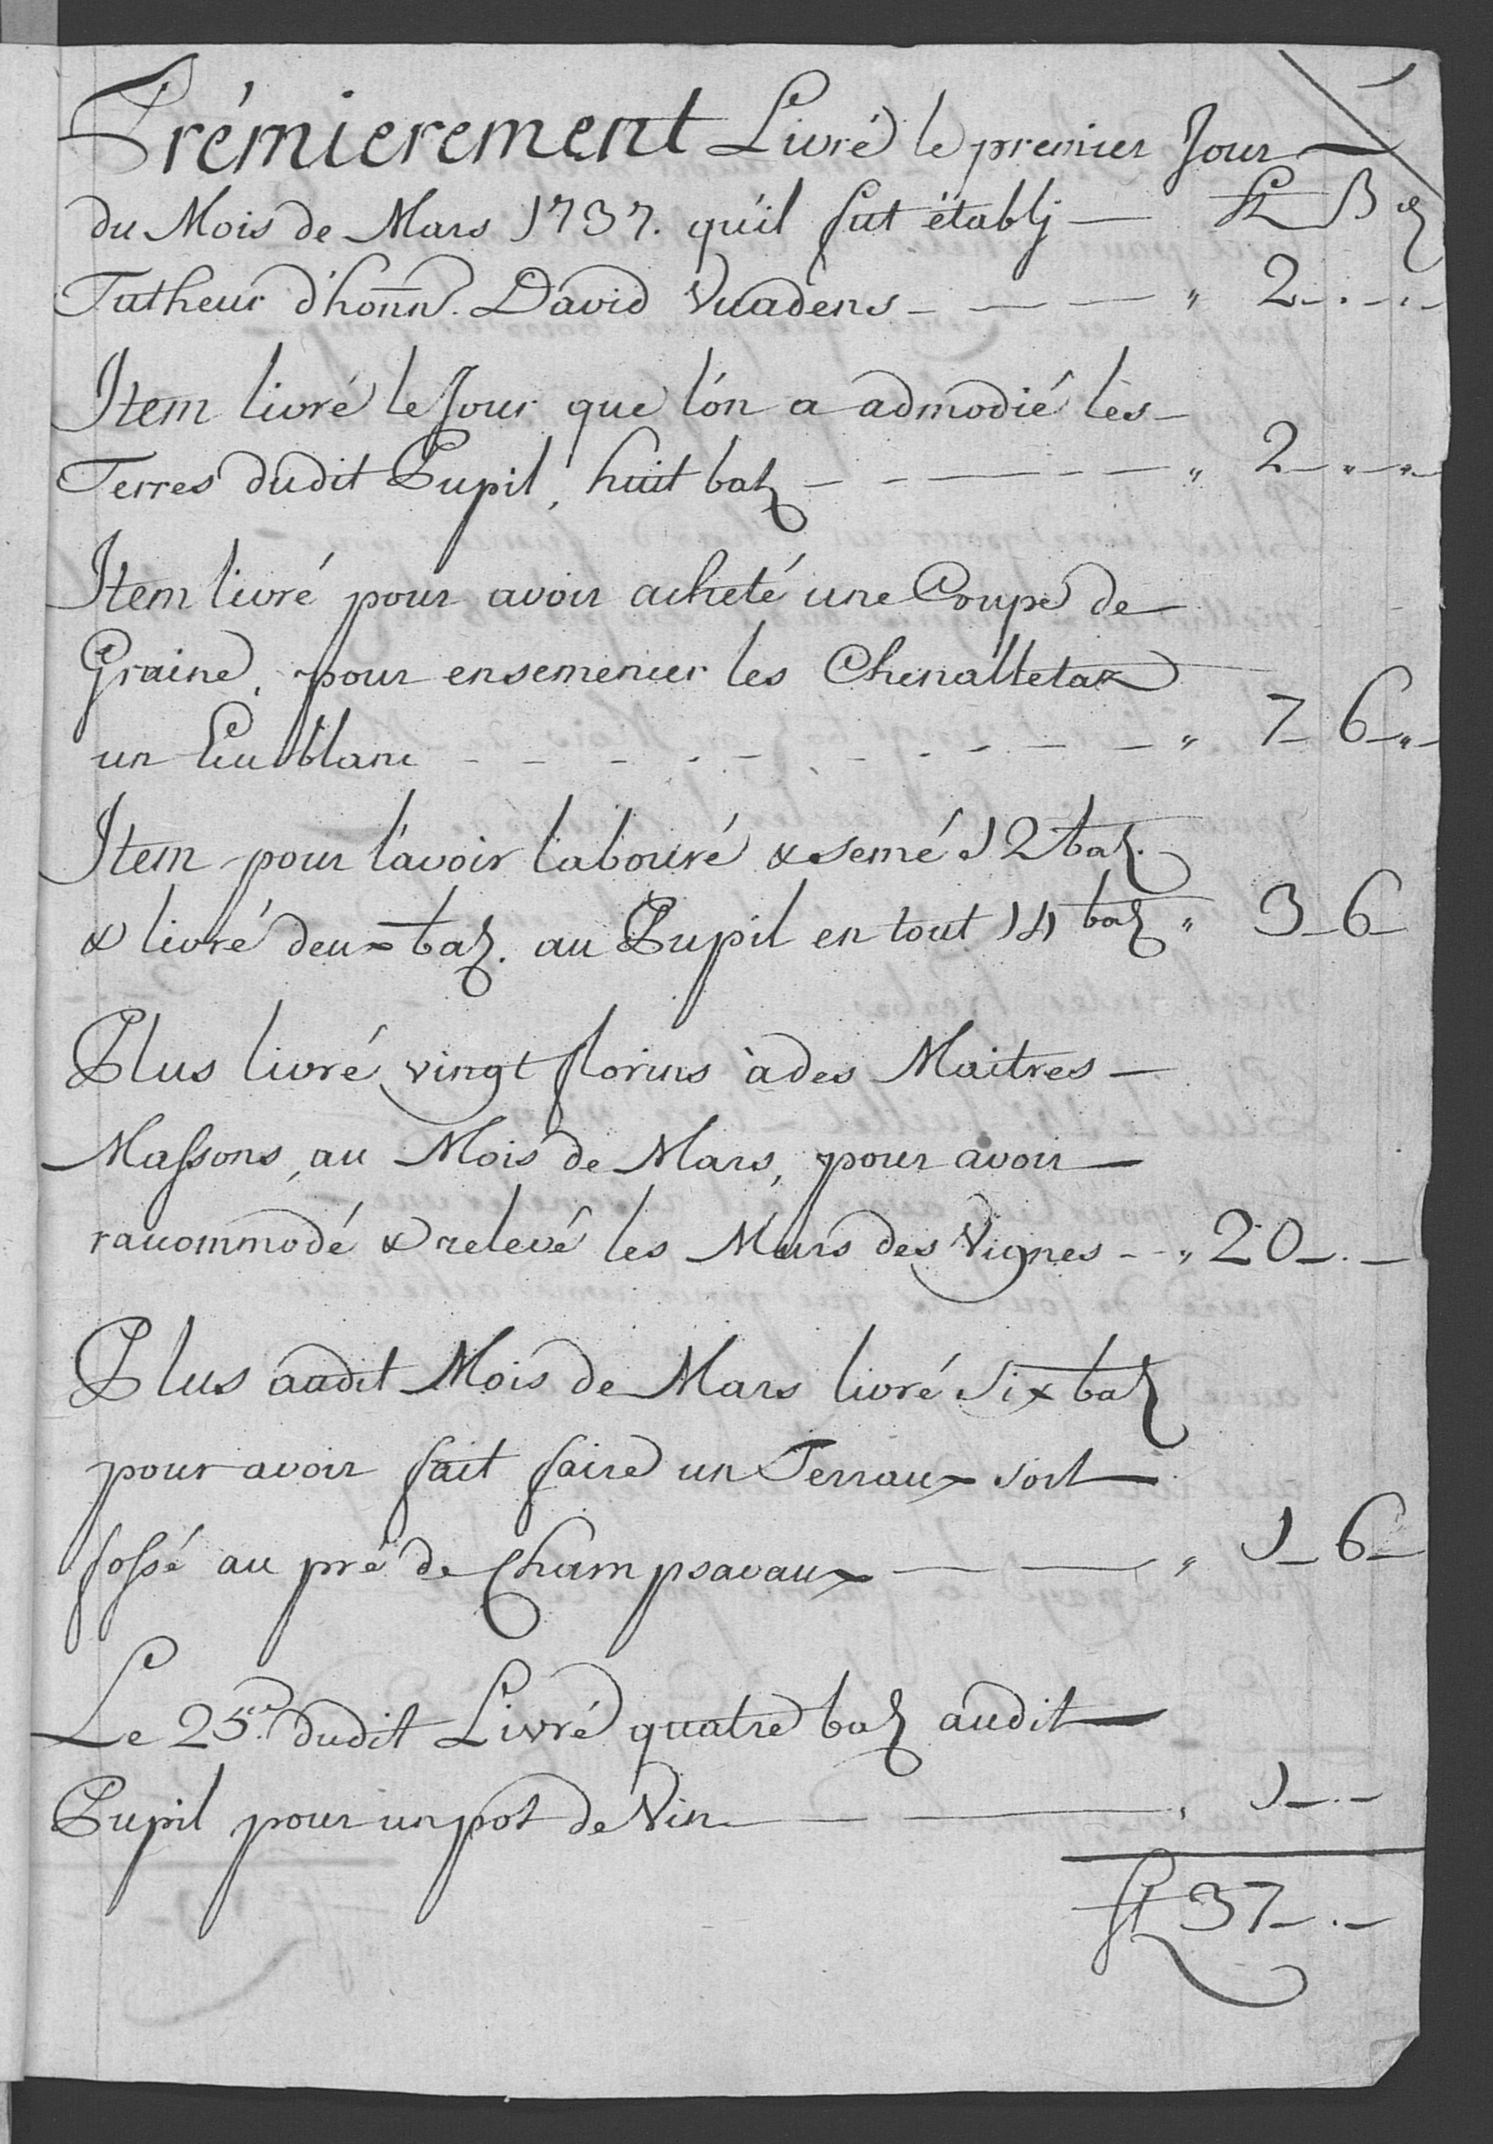 Prémierement Livré le premier Jour
du Mois de Mars 1737. qu'il fut établj — fl ß d
Tutheur d'honn. David Vuadens - — — " 2 - . - . -
Item livré le Jour que l'ón a admodié lés
Terres dudit Pupil, huit batz - - — - — " 2 - " - " -
Item livré pour avoir acheté une Coupe de
Graine, pour ensemencer les Chenallettaz
un Ecu blanc - - - - - - - - — — " 7 - 6 - " -
Item pour l'avoir labouré & semé 12 batz.
& livré deux batz. au Pupil en tout 14 batz " 3 - 6 -
Plus livré vingt florins à des Maitres —
Massons, au Mois de Mars, pour avoir —
racommodé & relevé les Murs des Vignes - - " 20 - . -
Plus audit Mois de Mars livré Six batz
pour avoir fait faire un Terraux soit
fossé au pré de Champsavaux — — " 1 - 6 -
Le 25e. dudit Livré quatre batz audit
Pupil pour un pot de Vin — — " 1 - . -
fl 37 - . -